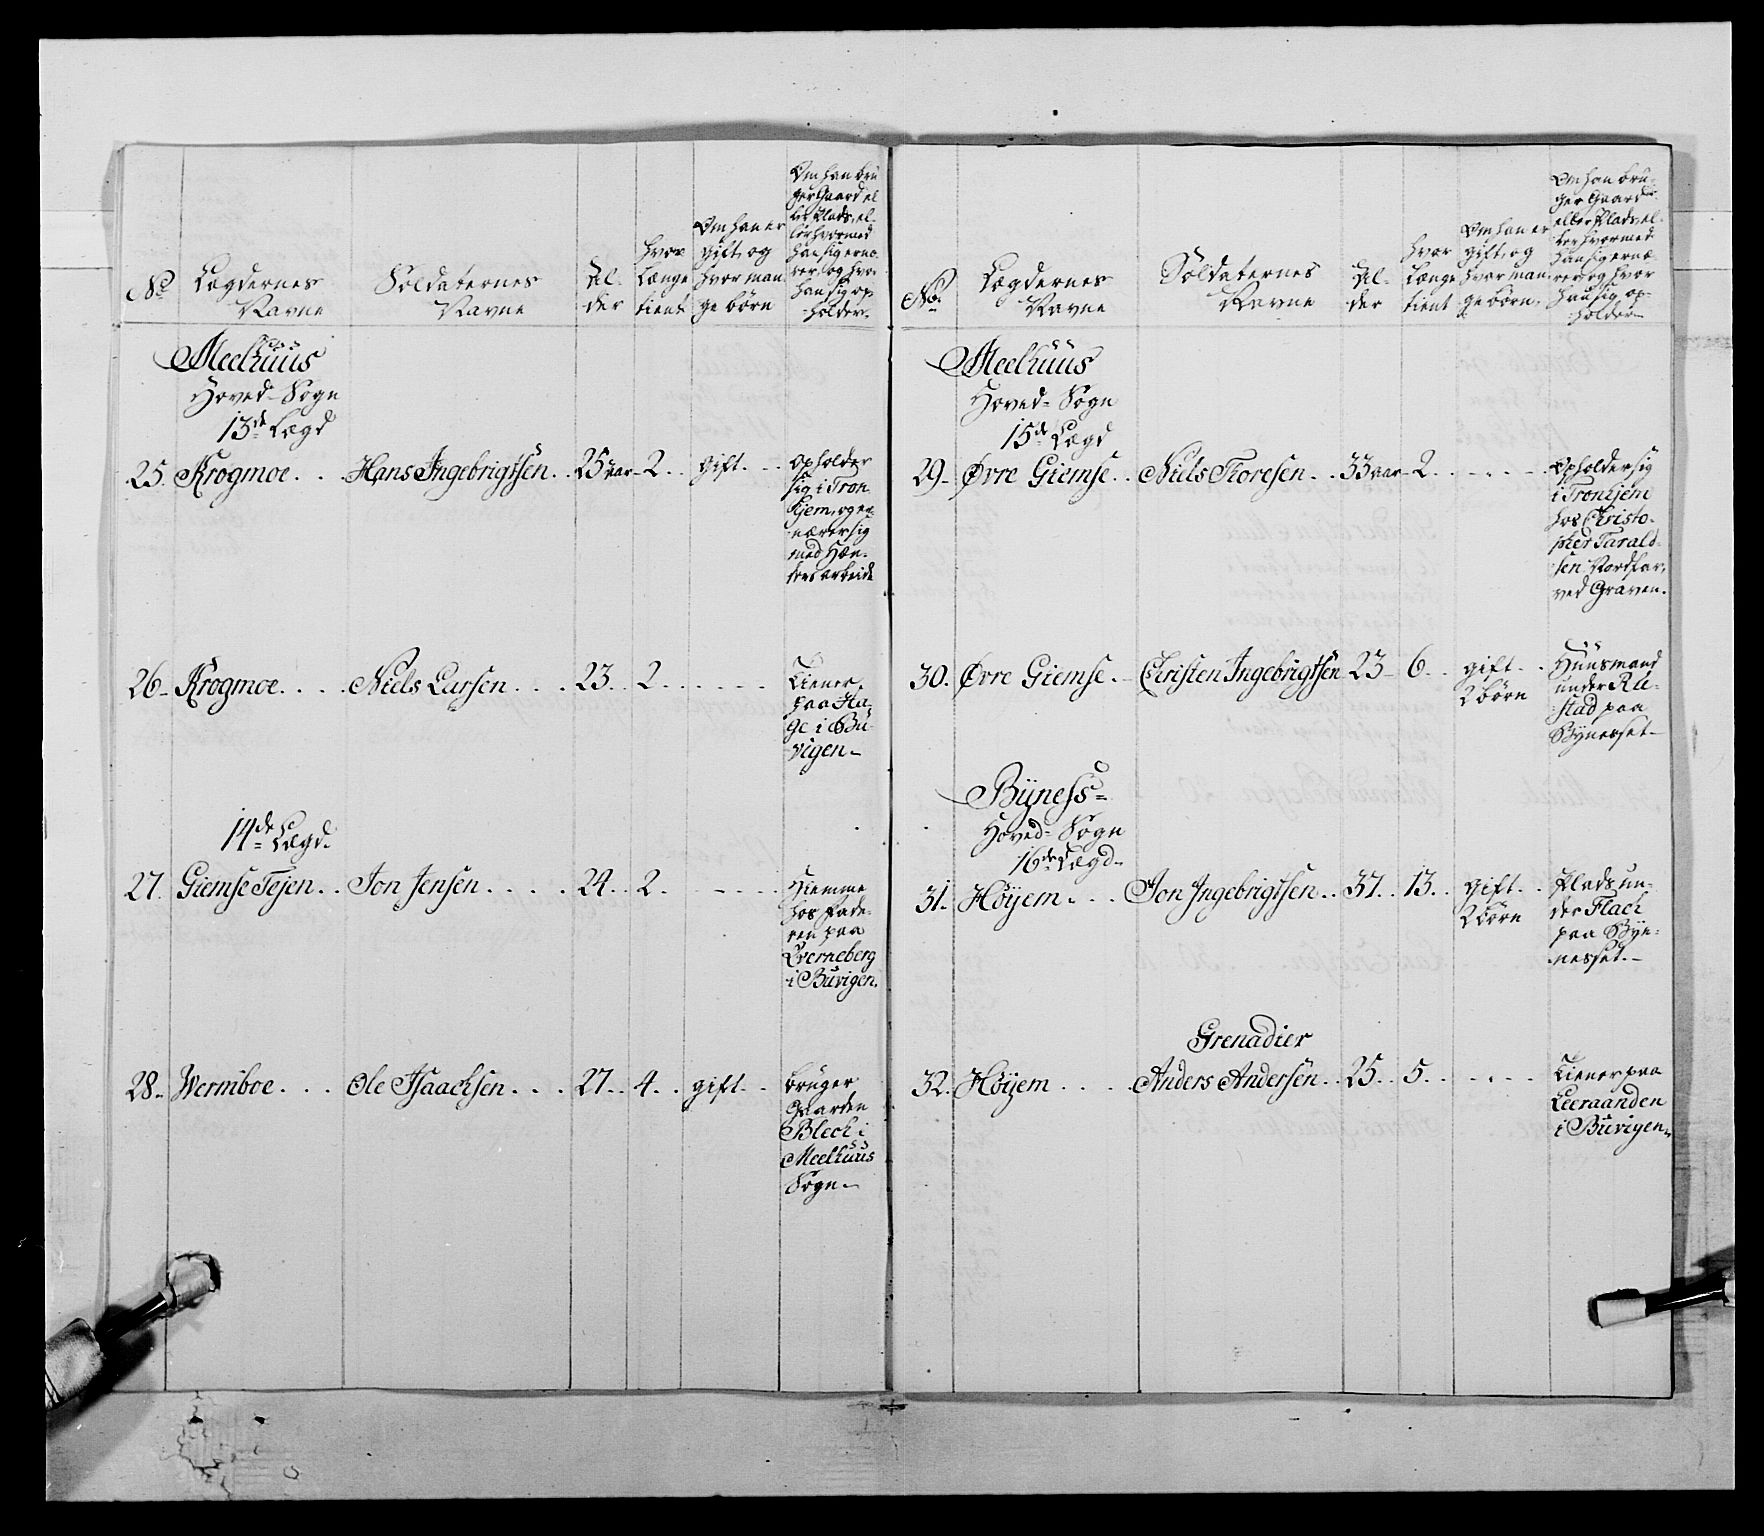 No
Lægdernes
Navne
Soldaternes
Navne
Al-
der
hvor
længe
tient
Om han er
gift, og
hvor man
ge börn
Om han bru
ger Gaard el
ler Plads, el-
ler hvormed
han sig ernæ-
rer, og hvor
han sig op-
holder.
Meelhuus
Hoved-Sogn
13de Lægd
25. Krogmoe. . . Hans Ingebrigtsen. . 25 aar- 2. . gift. . .
opholder
sig i Tron
hjem, og er-
nærer sig
med Hæn-
ders arbeide
26- Krogmoe. . . . Niels Larsen. . . . 23. . 2. . . . . . .
Tiener
paa Ha-
ge i Bu-
vigen-
14de Lægd.
27. Giemse Tejen. . Jon Jensen. . . . . 24. . 2. . . . . .
Hiemme
hos Fade-
ren paa
Qverneberg
i Buvigen.
28.- Wermboe. . . . Ole Isaachsen. . . . 27. . 4. . gift. . .
bruger
Gaarden
Blech i
Meelhuus
Sogn-
No.
Lægdernes
Navne
Soldaternes
Navne
Al-
der
hvor
længe
tient
Om han er
gift, og
hvor man-
ge börn.
Om han bru-
ger Gaard
eller Plads, el-
ler hvormed
han sig ernæ-
rer, og hvor
han sig op-
holder-
Meelhuus
Hoved-Sogn
15de Lægd
29- Øvre Giemse. . Niels Thoresen. . . 33 aar- 2. . . . . .
Opholder sig
i Tronhjem
hos Christo-
pher Tarald-
sen Nordfar,
ved Graven.
30. Øvre Giemse. - Christen Ingebrigtsen 23- 6. . gift. . .
2 börn
Huusmand
under Ru-
stad paa
Bynesset-
Bÿness-
Hoved-Sogn
16de Lægd-
31. Höyem. . . . Jon Ingebrigtsen. . 37. . 13. . gift. . .
2 börn
Plads un-
der Flach
paa Bye-
nesset.-
Grenadier
32. Höyem . . . . Anders Andersen. . 25. . 5. . . . . .
Tiener paa
Leeraanden
i Buvigen-